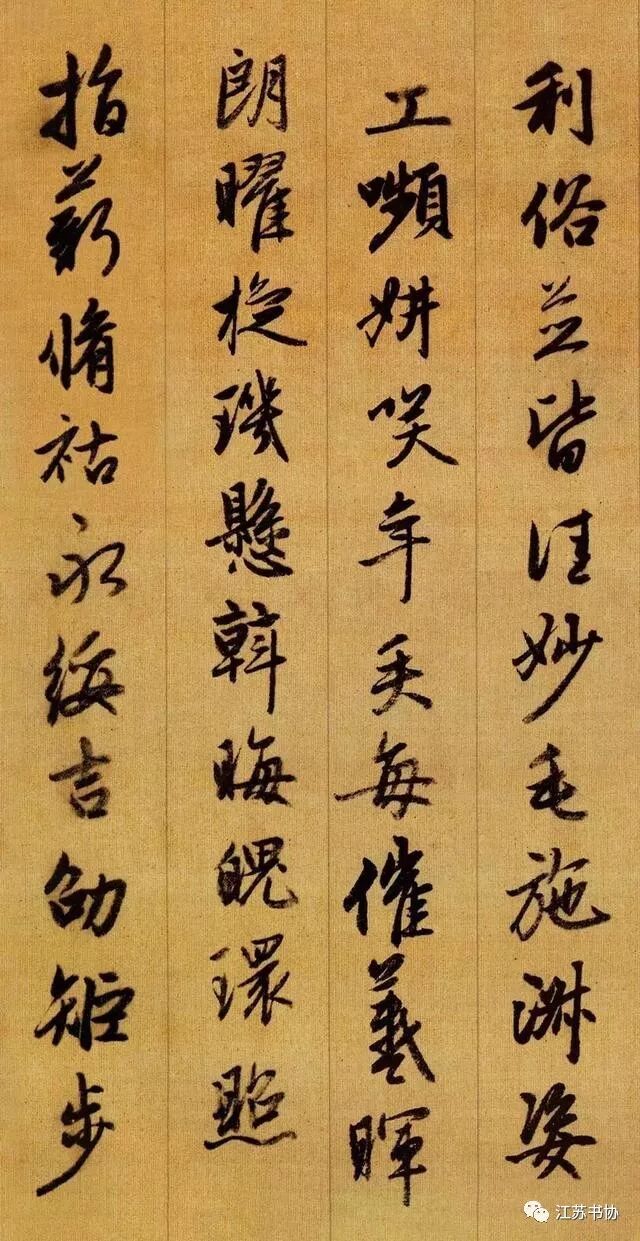 利俗並皆佳妙毛施淑姿
工嚬妍咲年矢每催羲暉
朗曜旋璣懸斡晦魄環照
指薪脩祜永綏吉劭矩步
江苏书协